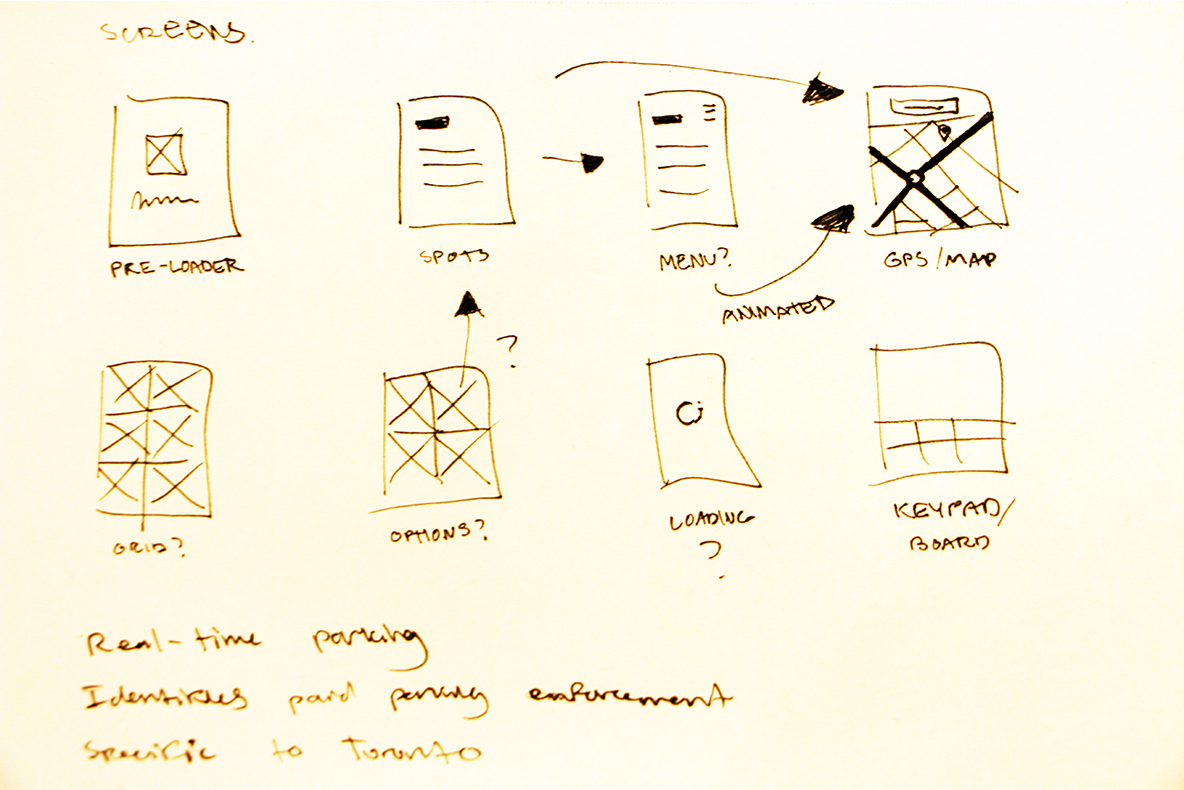 SCREENS.
PRE-LOADER
SPOTS
MENU?
GPS/MAP
ANIMATED
?
GRID?
OPTIONS?
LOADING
?
KEYPAD/
BOARD
Real-time parking
Identifies paid parking enforcement
Specific to Toronto